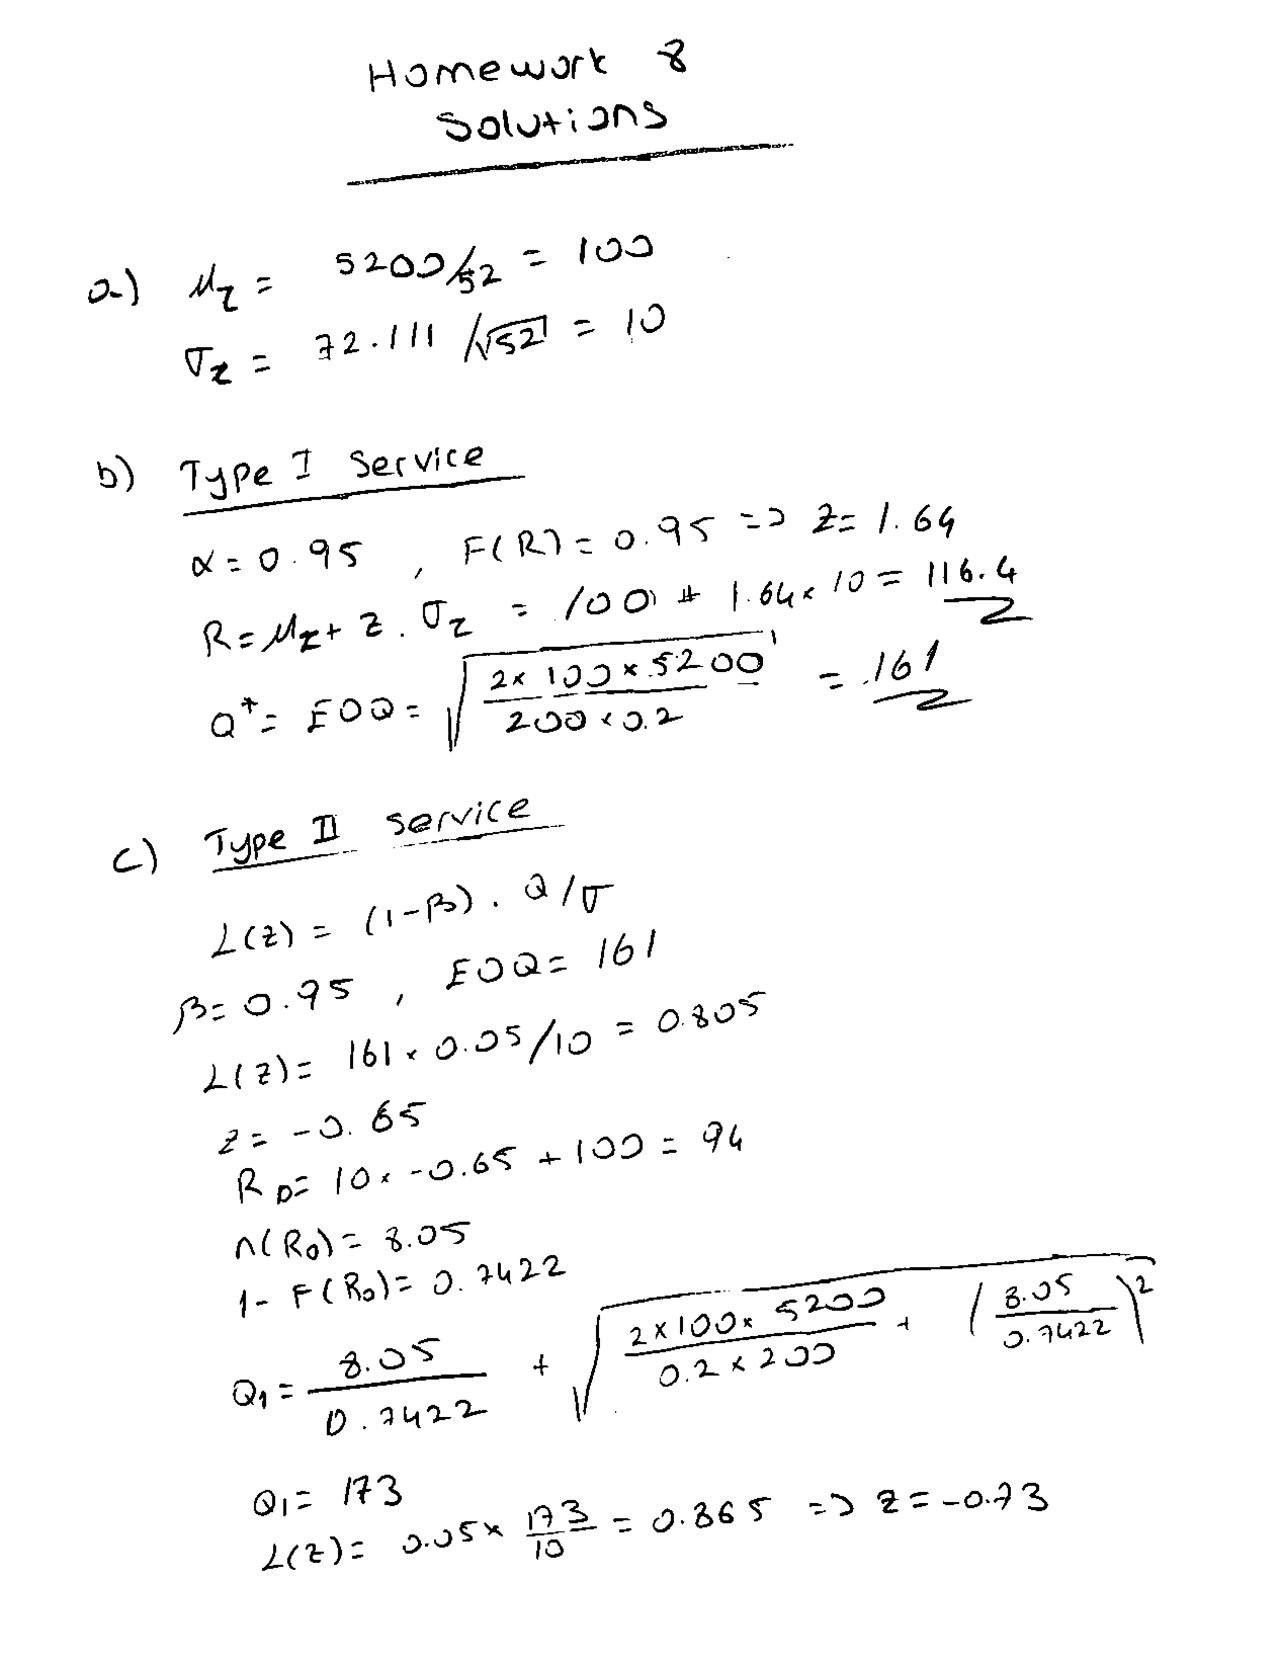 Homework 8
Solutions
a) μz = 5200/52 = 100
σz = 72.111/√52 = 10
b) Type I Service
α = 0.95 , F(R) = 0.95 => z = 1.64
R = μz + z . σz = 100 + 1.64 × 10 = 116.4
Q* = EOQ = √(2 × 100 × 5200 / 200 × 0.2) = 161
c) Type II service
L(z) = (1-β) . Q/σ
β = 0.95 , EOQ = 161
L(z) = 161 × 0.05/10 = 0.805
z = -0.65
R0 = 10 × -0.65 + 100 = 94
n(R0) = 8.05
1 - F(R0) = 0.7422
Q1 = 8.05/0.7422 + √(2 × 100 × 5200 / 0.2 × 200 + (8.05/0.7422)²)
Q1 = 173
L(z) = 0.05 × 173/10 = 0.865 => z = -0.73